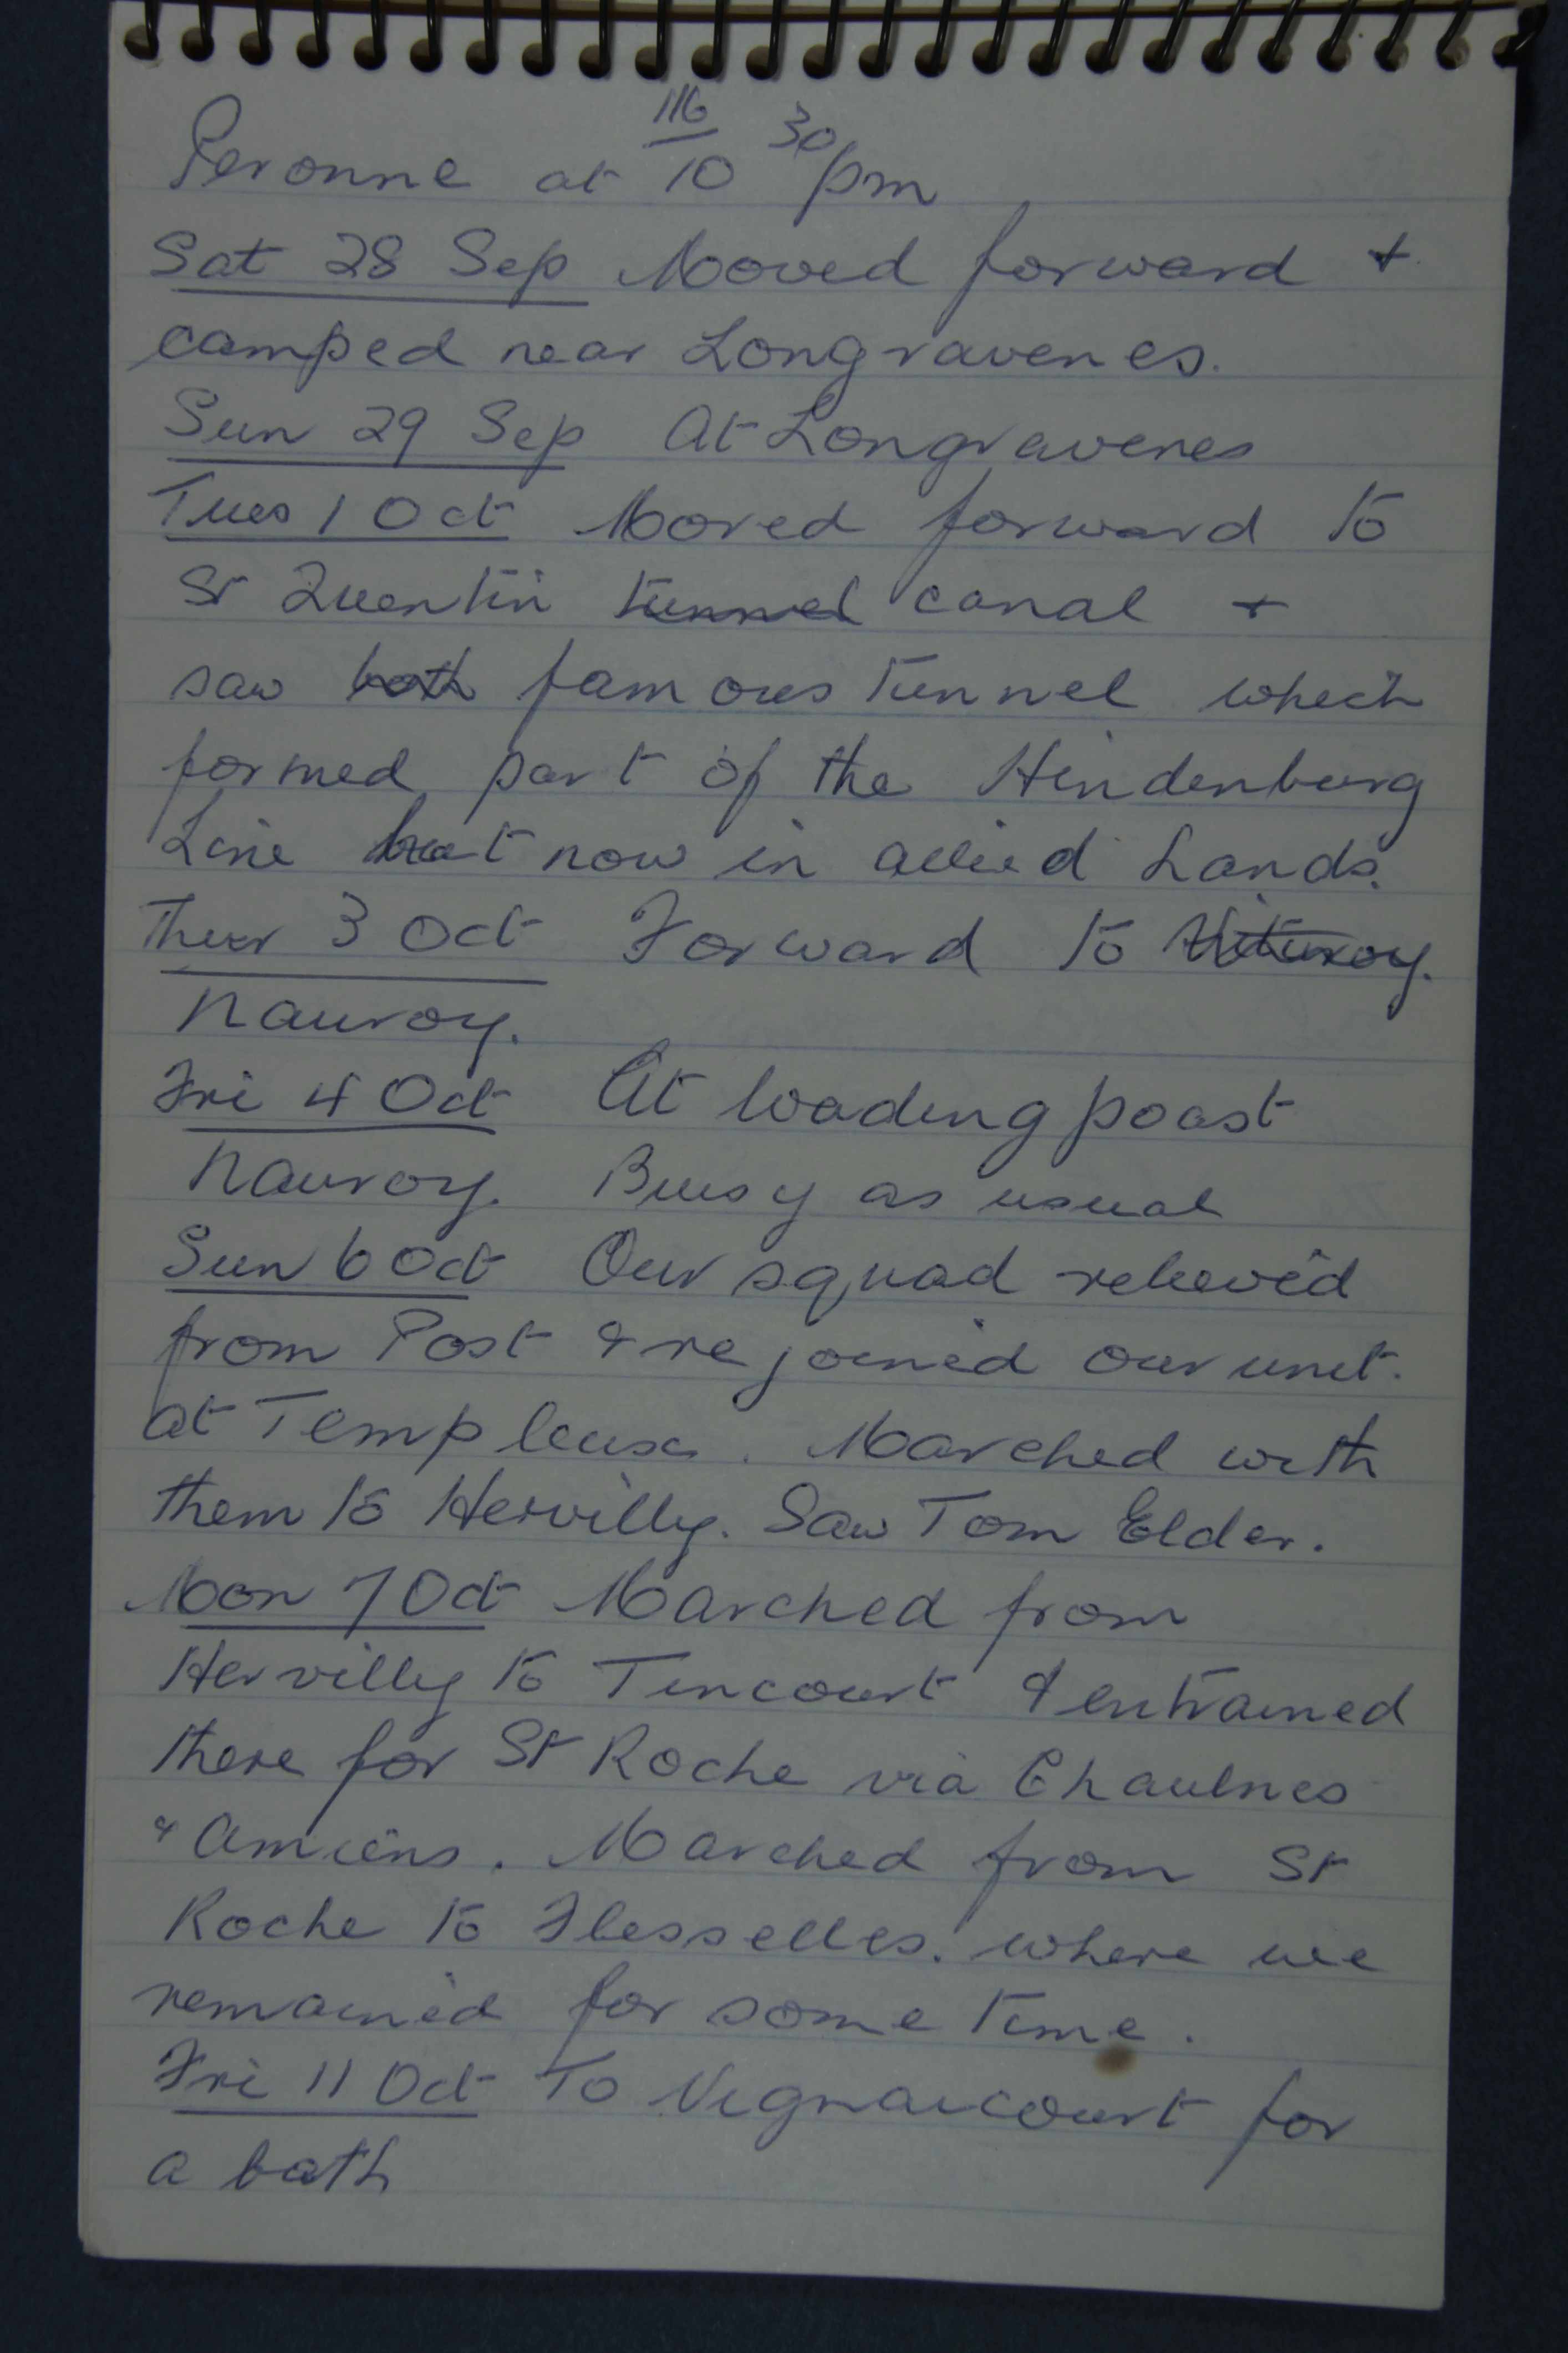 116
Peronne at 10 30 pm
Sat 28 Sep Moved forward +
camped near Longravenes.
Sun 29 Sep At Longravenes
Tues 1 Oct Moved forward to
St Quentin tunnel canal +
saw both famous tunnel which
formed part of the Hindenburg
Line but now in allied hands.
Thur 3 Oct Forward to
Nauroy.
Fri 4 Oct At loading poast
Nauroy. Busy as usual
Sun 6 Oct Our squad relieved
from Post & rejoined our unit.
at Templeux. Marched with
them to Hervilly. Saw Tom Elder.
Mon 7 Oct Marched from
Hervilly to Tincourt & entrained
there for St Roche via Chaulnes
& Amiens. Marched from St
Roche to Flesselles. where we
remained for some time.
Fri 11 Oct To Vignaicourt for
a bath